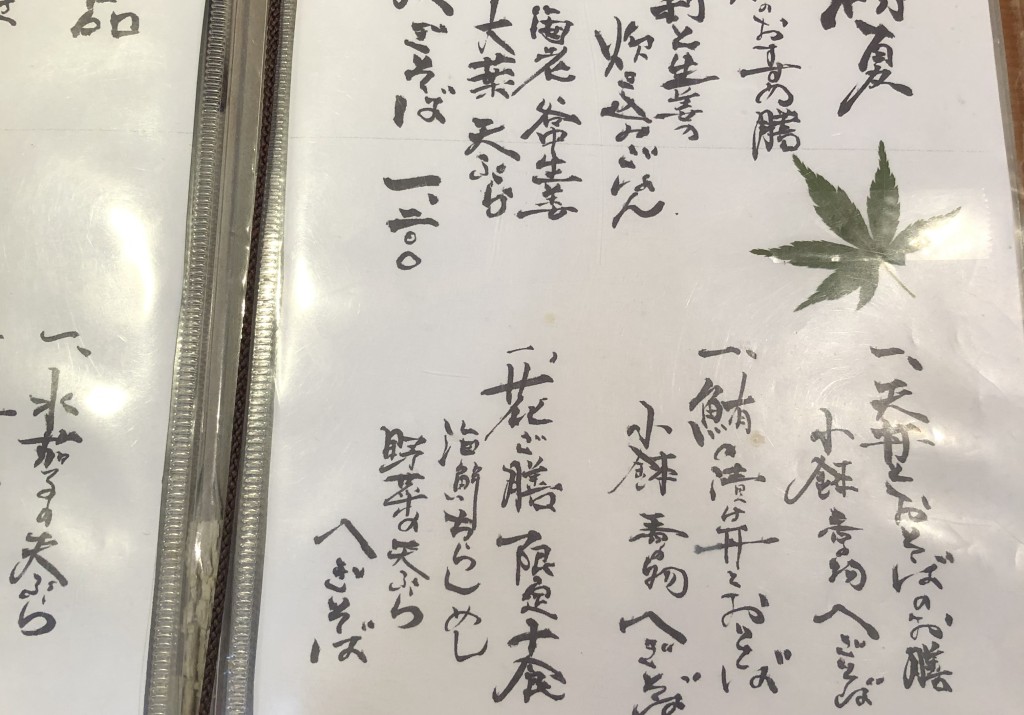 夏
のおすすめ膳
と生姜の
炊き込みごはん
海老 谷中生姜
大葉 天ぷら
へぎそば
一、二〇〇
一、天丼とおそばのお膳
小鉢 香の物 へぎそば
一、鮪の漬け丼とおそば
小鉢 香の物 へぎそば
一、花ご膳 限定十食
海鮮ちらしめし
野菜の天ぷら
へぎそば
品
一、水茄子の天ぷら